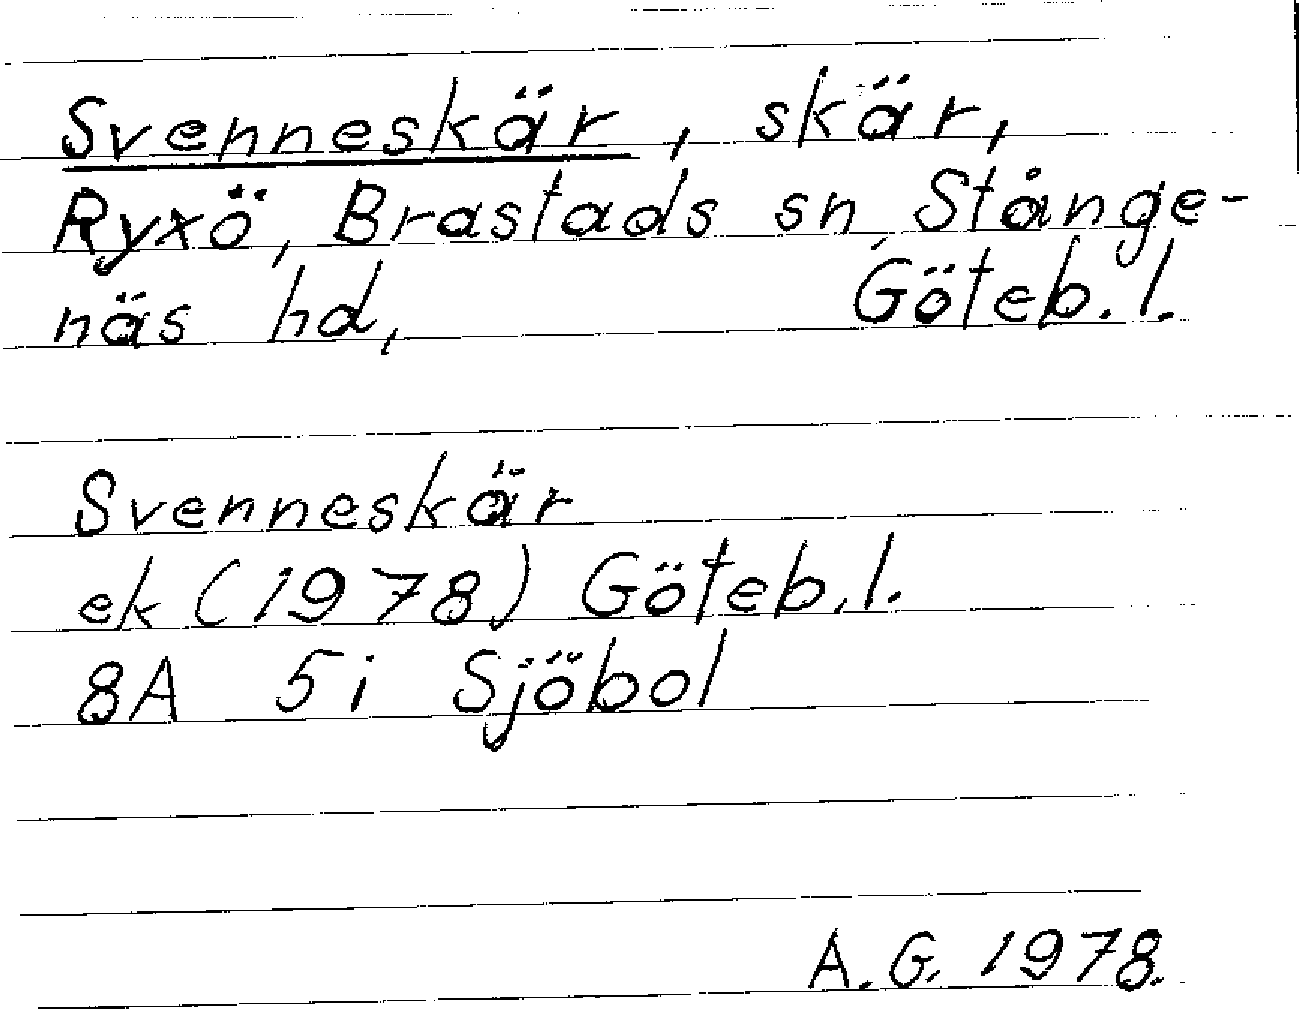 Svenneskär, skär,
Ryxö, Brastads sn, Stånge-
näs hd, Göteb. l.
Svenneskär
ek (1978) Göteb. l.
8A 5i Sjöbol
A. G. 1978.